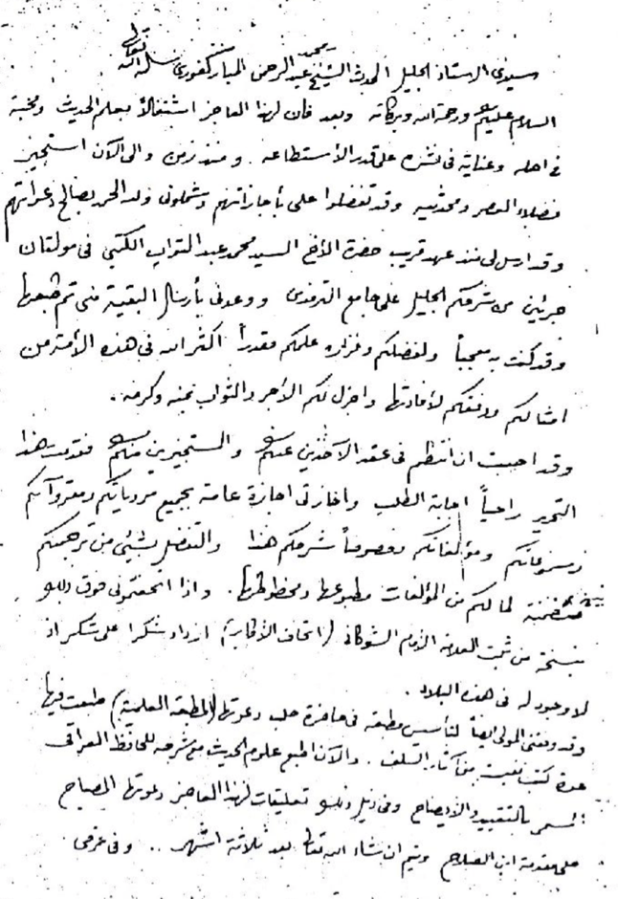 سيدي الاستاذ الجليل المحدث الشيخ محمد عبد الرحمن المباركفوري سلمه الله تعالى
السلام عليكم ورحمة الله وبركاته وبعد فان لهذا العاجز اشتغالاً بعلم الحديث ومحبة
في اهله وعناية في نشره على قدر الأستطاعه. ومنذ زمن والى الآن استجيز
فضلاء العصر ومحدثيه وقد تفضلوا علي بأجازاتهم وشملوني ولله الحمد بصالح دعواتهم
وقد ارسل لي منذ عهد قريب حضرة الأخ السيد محمد عبد التواب الكتبي في مولتان
جزئين من شرحكم الجليل على جامع الترمذي ووعدني بأرسال البقية متى تم طبعها
وقد كنت به معجباً ولفضلكم وغزاره علمكم مقدراً اكثر الله في هذه الأمة من
امثالكم ووفقكم لأفادتها واجزل لكم الأجر والثواب بمنه وكرمه.
وقد احببت ان انتظم في عقد الآخذين عنكم والمستجيزين منكم فقدمت هذا
التحرير راجياً اجابة الطلب واجازتي اجازة عامة بجميع مروياتكم ومقروآتكم
ومسموعاتكم ومؤلفاتكم وخصوصاً شرحكم هذا والتفضل بشيئ من ترجمتكم
متضمنة لما لكم من المؤلفات مطبوعها ومخطوطها. واذا اتحفتموني فوق ذلك
بنسخة من ثبت العلامة الأمام الشوكاني (اتحاف الأكابر) ازداد شكرا على شكر اذ
لا وجود له في هذه البلاد.
وقد وفقني المولى ايضاً لتأسيس مطبعة في حاضرة حلب دعوتها (المطبعة العلمية) طبعت فيها
عدة كتب من آثار السلف. والآن اطبع علوم الحديث مع شرحه للحافظ العراقي
المسمى بالتقييد والأيضاح وفي ذيل ذلك تعليقات لهذا العاجز دعوتها المصباح
على مقدمة ابن الصلاح ويتم ان شاء الله تعالى بعد ثلاثة اشهر .. وفي عزمي